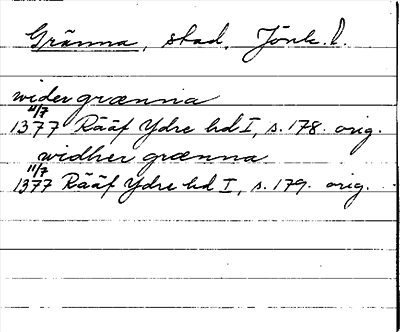 Gränna, stad, Jönk. l.
wider grænnia
11/7
1377 Rääf Ydre hd I, s. 178. orig.
widher grænna
11/7
1377 Rääf Ydre hd I, s. 179. orig.